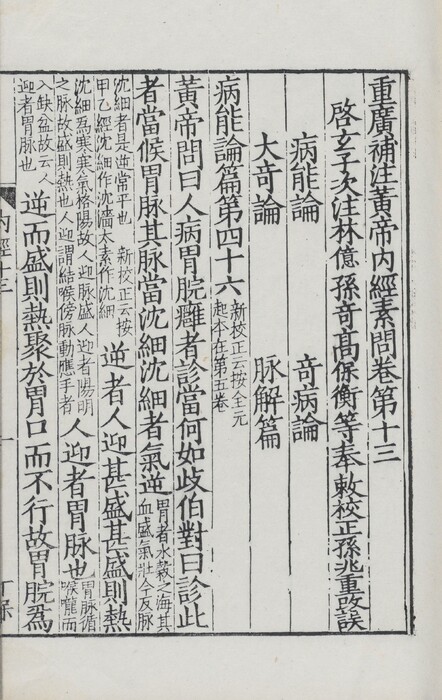 重廣補注黃帝內經素問卷第十三
啓玄子次注林億孫奇高保衡等奉敕校正孫兆重改誤
病能論 奇病論
大奇論 脉解篇
病能論篇第四十六 新校正云按全元
起本在第五卷
黃帝問曰人病胃脘癰者診當何如歧伯對曰診此
者當候胃脉其脉當沈細沈細者氣逆 胃者水穀之海其
血盛氣壯今反脉
沈細者是逆常平也 新校正云按
甲乙經沈細作沈濇太素作沈細 逆者人迎甚盛甚盛則熱
沈細爲寒寒氣格陽故人迎脉盛人迎者陽明
之脉故盛則熱也人迎謂結喉傍脉動應手者 人迎者胃脉也 胃脉循
喉嚨而
入缺盆故云人
迎者胃脉也 逆而盛則熱聚於胃口而不行故胃脘爲
內經十三
一